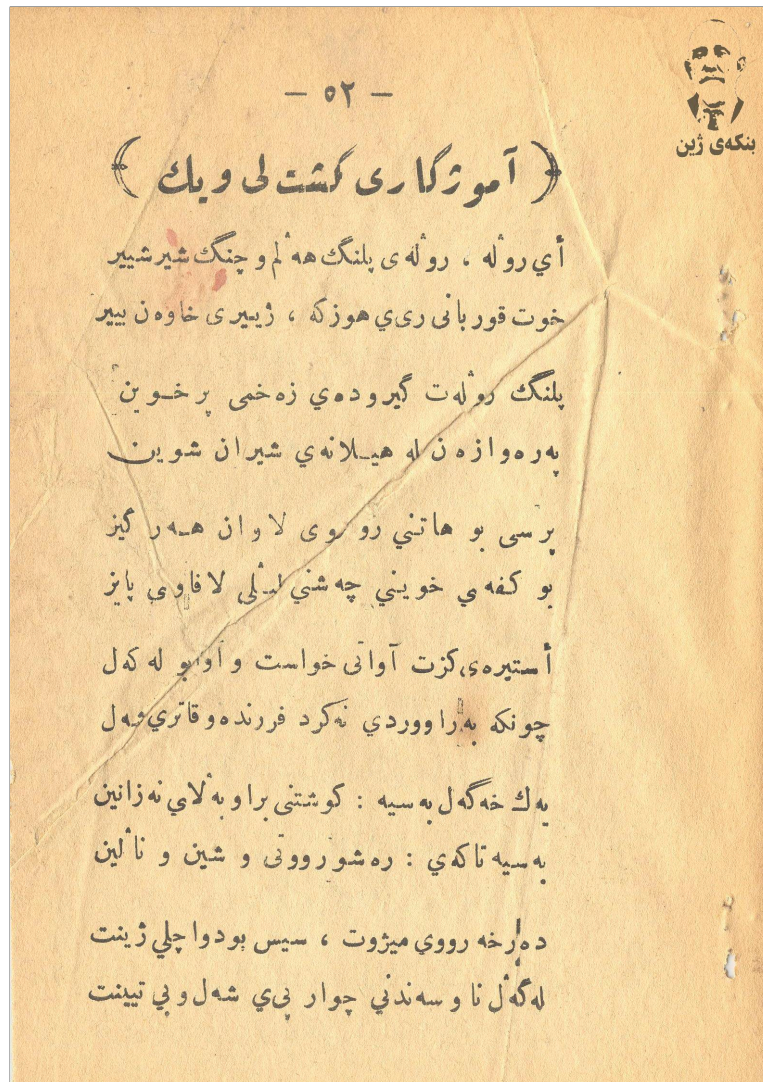 بنکەی ژین
— ٥٢ —
﴿ آموژگاری گشت لی ویك ﴾
أي رۆله ، رۆله‌ی پلنگ هه‌ڵم و چنگ شیر شییر
خوت قوربانی ری‌ي هوزکه ، ژییری خاوه‌ن بییر
پلنگ رۆله‌ت گیروده‌ي زه‌خمی پر خـوین
په‌ره‌وازه‌ن له هیـلانه‌ي شیران شوین
پرسی بو هاتني روی لاوان هـه‌ر گیز
بو کـفه‌ي خویني چه‌شني لیـڵی لافاوی پایز
أستیره‌ی گزت آواتی خواست و آوابو له کەل
چونکه به‌راووردي نه‌کرد فررنده‌و قاتری و شه‌ل
یه‌ك خه‌گه‌ل به‌سیه : کوشتنی براو به‌ڵای نه‌زانین
به‌سیه تاکه‌ي : ره‌شورووتی و شین و ناڵین
ده‌رخه رووی میژوت ، سیس بودوا چلي ژینت
له‌گه‌ڵ ناوسه‌ندني چوار پی‌ي شه‌ل و بي تیینت